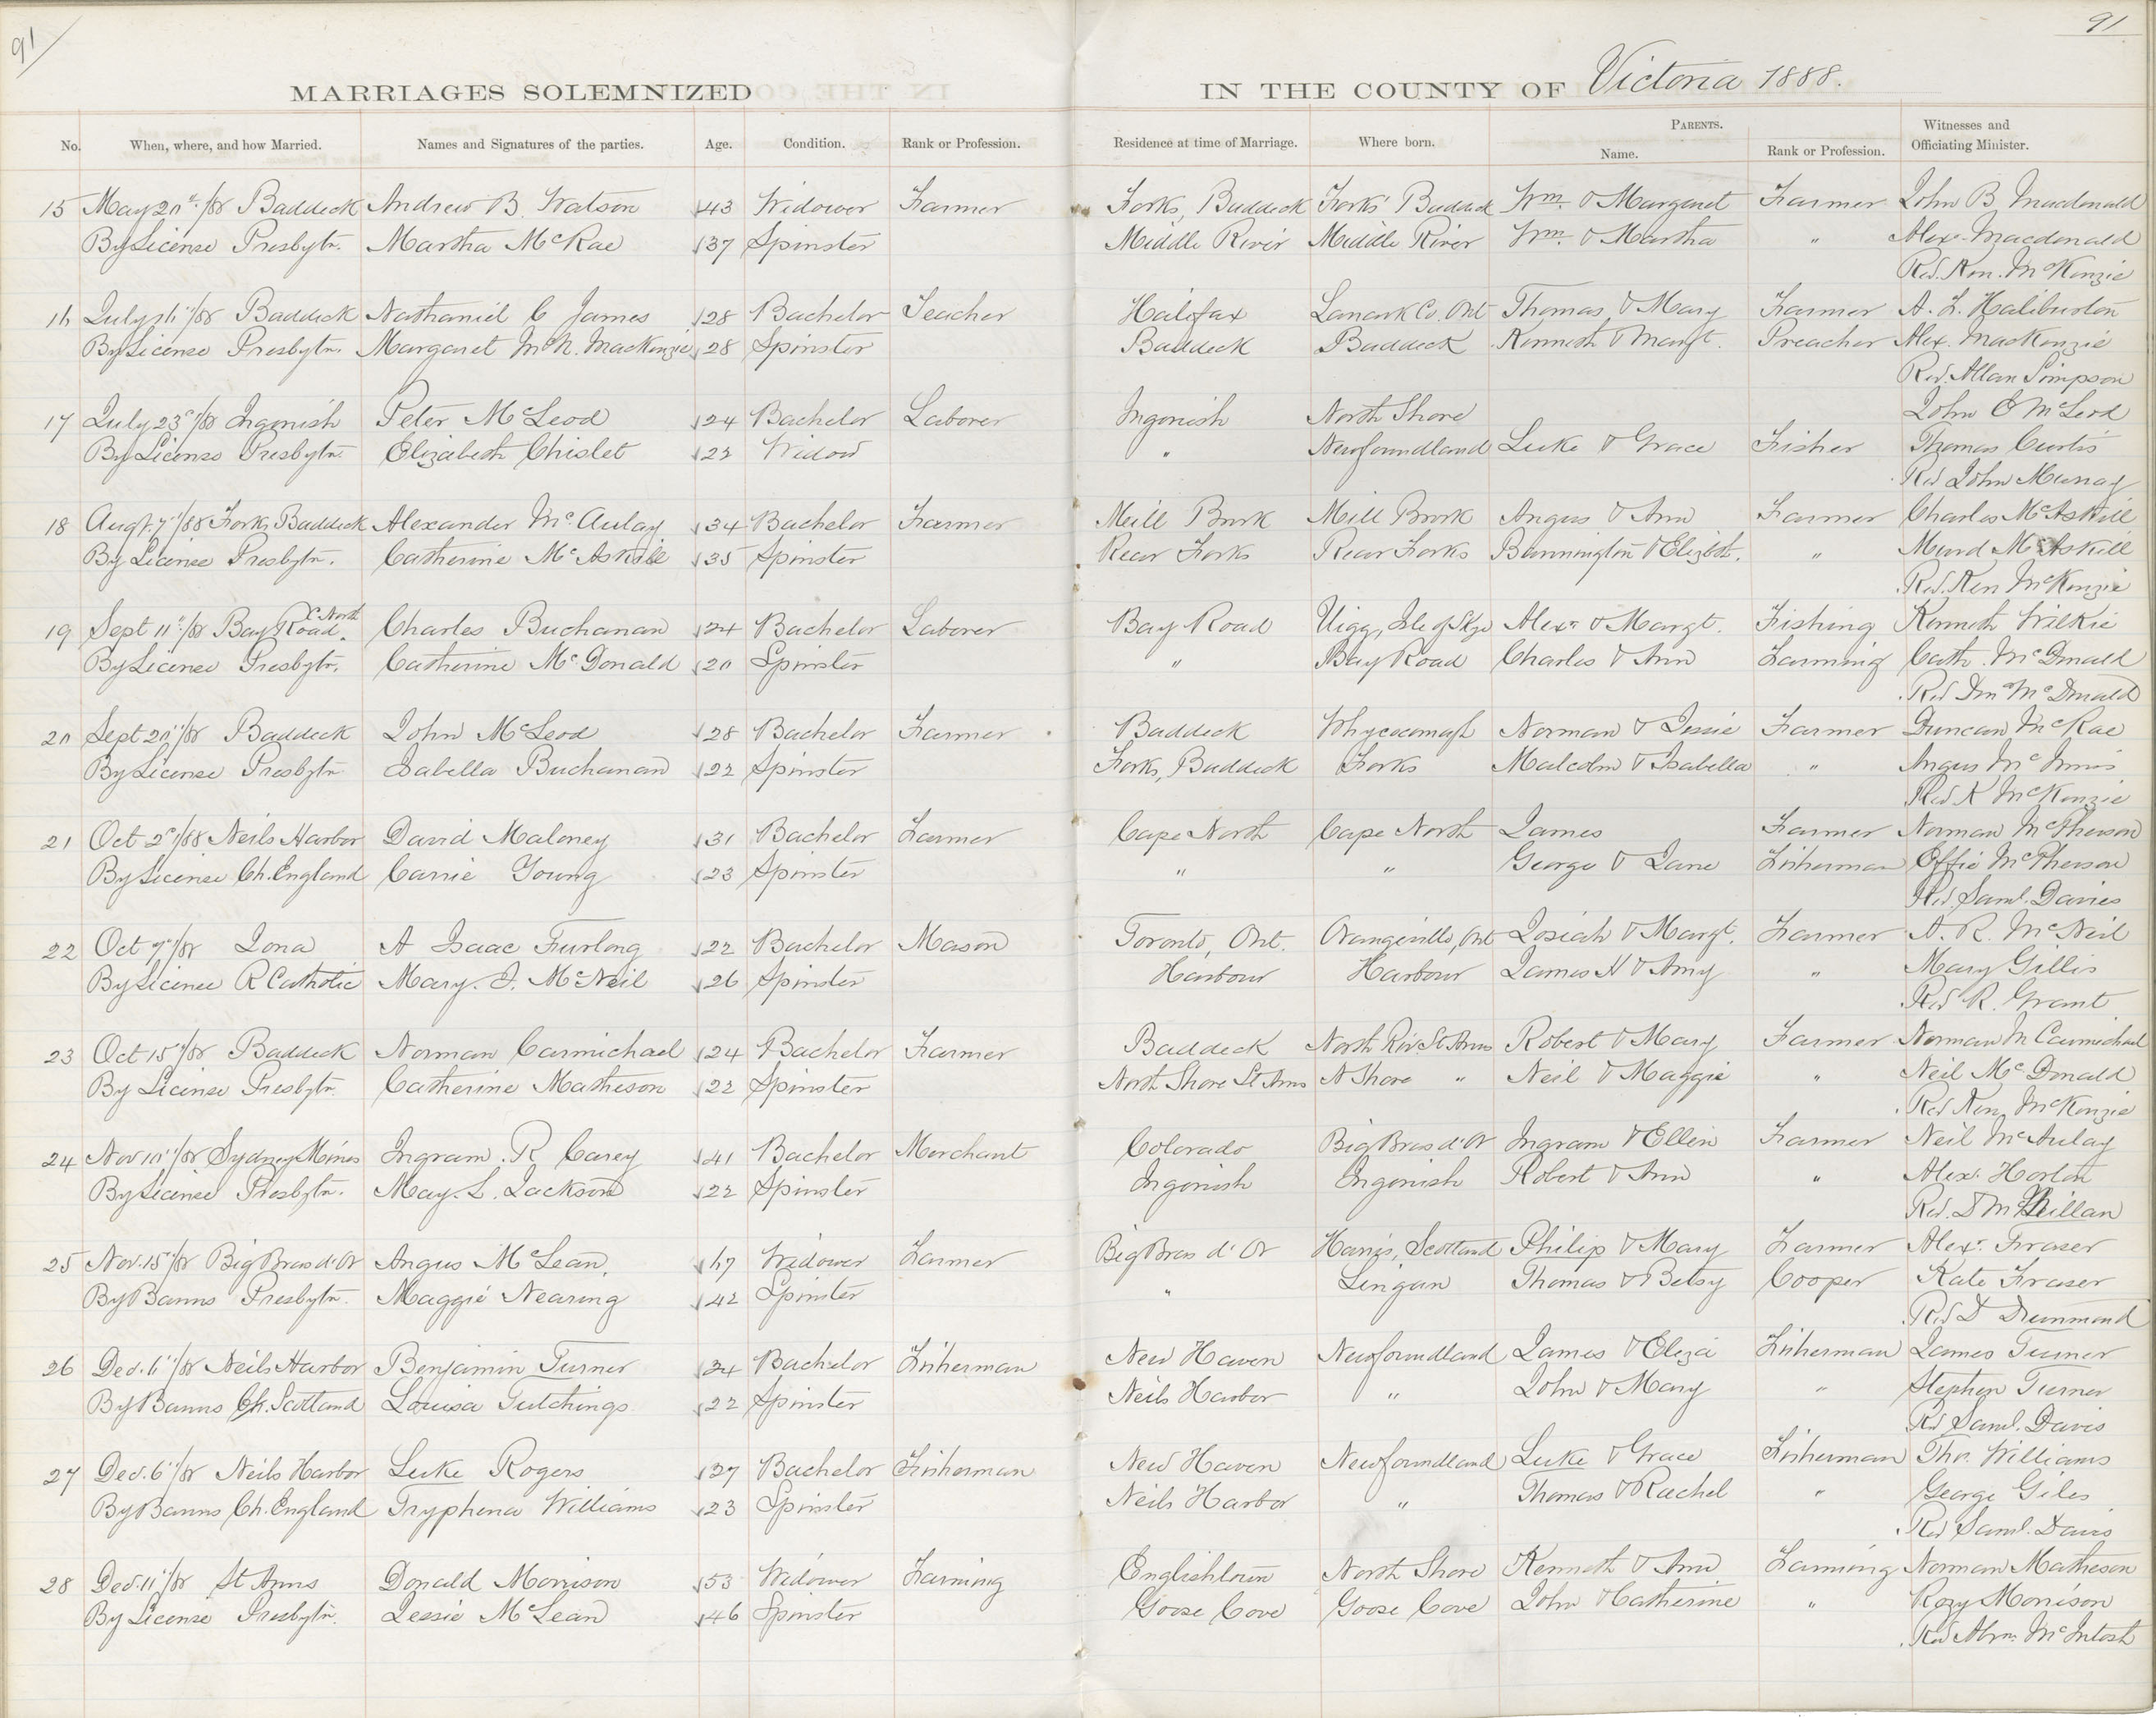 91
91
MARRIAGES SOLEMNIZED IN THE COUNTY OF Victoria 1888.
No. When, where, and how Married. Names and Signatures of the parties. Age. Condition. Rank or Profession. Residence at time of Marriage. Where born. PARENTS. Name. Rank or Profession. Witnesses and Officiating Minister.
15 May 20"/88 Baddeck Andrew B. Watson 43 Widower Farmer Forks, Baddeck Forks Baddeck Wm. & Margaret Farmer John B Macdonald
By License Presbytn. Martha McRae 37 Spinster Middle River Middle River Wm. & Martha " Alexr. Macdonald
Rev. Ken. McKenzie
16 July 16"/88 Baddeck Nathaniel C James 28 Bachelor Teacher Halifax Lanark Co. Ont Thomas & Mary Farmer A. F. Haliburton
By License Presbytn. Margaret McN. MacKenzie 28 Spinster Baddeck Baddeck Kenneth & Margt. Preacher Alex. MacKenzie
Rev. Allan Simpson
17 July 23"/88 Ingonish Peter McLeod 24 Bachelor Laborer Ingonish North Shore John E McLeod
By License Presbytn. Elizabeth Chislet 22 Widow " Newfoundland Luke & Grace Fisher Thomas Curtis
Rev John Murray
18 Augt. 7"/88 Forks Baddeck Alexander McAulay 34 Bachelor Farmer Mill Brook Mill Brook Angus & Ann Farmer Charles McAskill
By License Presbytn. Catherine McAskill 35 Spinster Rear Forks Rear Forks Bannington & Elizbth. " Murd McAskill
Rev. Ken McKenzie
19 Sept 11"/88 Bay Road. C North Charles Buchanan 24 Bachelor Laborer Bay Road Uigg, Isle of Skye Alexr. & Margt. Fishing Kenneth Wilkie
By License Presbytn. Catherine McDonald 20 Spinster " Bay Road Charles & Ann Farming Cath. McDonald
Rev Dn McDonald
20 Sept 20"/88 Baddeck John McLeod 28 Bachelor Farmer Baddeck Whycocomagh Norman & Jessie Farmer Duncan McRae
By License Presbytn Isabella Buchanan 22 Spinster Forks, Baddeck Forks Malcolm & Isabella " Angus McInnis
Rev K McKenzie
21 Oct 2"/88 Neils Harbor David Maloney 31 Bachelor Farmer Cape North Cape North James Farmer Norman McPherson
By License Ch. England Carrie Young 23 Spinster " " George & Jane Fisherman Effie McPherson
Rev Saml. Davies
22 Oct 7"/88 Iona A Isaac Furlong 22 Bachelor Mason Toronto, Ont. Orangeville, Ont Josiah & Margt. Farmer A. R. McNeil
By License R Catholic Mary. J. McNeil 26 Spinster Harbour Harbour James H & Amy " Mary Gillis
Rev R. Grant
23 Oct 15"/88 Baddeck Norman Carmichael 24 Bachelor Farmer Baddeck North Riv. St Anns Robert & Mary Farmer Norman M Carmichael
By License Presbytn. Catherine Matheson 22 Spinster North Shore St Anns N Shore " Neil & Maggie " Neil McDonald
Rev Ken McKenzie
24 Nov 10"/88 Sydney Mines Ingram. R Carey 41 Bachelor Merchant Colorado Big Bras d'Or Ingram & Ellen Farmer Neil McAulay
By License Presbytn. May. L. Jackson 22 Spinster Ingonish Ingonish Robert & Ann " Alex. Horton
Rev. D McMillan
25 Nov. 15"/88 Big Bras d'Or Angus McLean. 67 Widower Farmer Big Bras d'Or Harris, Scotland Philip & Mary Farmer Alexr. Fraser
By Banns Presbytn. Maggie Nearing 42 Spinster " Lingan Thomas & Betsy Cooper Kate Fraser
Rev D Drummond
26 Dec. 6"/88 Neils Harbor Benjamin Turner 24 Bachelor Fisherman New Haven Newfoundland James & Eliza Fisherman James Turner
By Banns Ch. Scotland Louisa Gutchings 22 Spinster Neils Harbor " John & Mary " Stephen Turner
Rev Saml. Davis
27 Dec. 6"/88 Neils Harbor Luke Rogers 27 Bachelor Fisherman New Haven Newfoundland Luke & Grace Fisherman Tho. Williams
By Banns Ch. England Tryphena Williams 23 Spinster Neils Harbor " Thomas & Rachel " George Giles
Rev Saml. Davis
28 Dec. 11"/88 St Anns Donald Morrison 53 Widower Farming Englishtown North Shore Kenneth & Ann Farming Norman Matheson
By License Presbytn. Jessie McLean 46 Spinster Goose Cove Goose Cove John & Catherine " Rozy Morrison
Rev Abrm. McIntosh